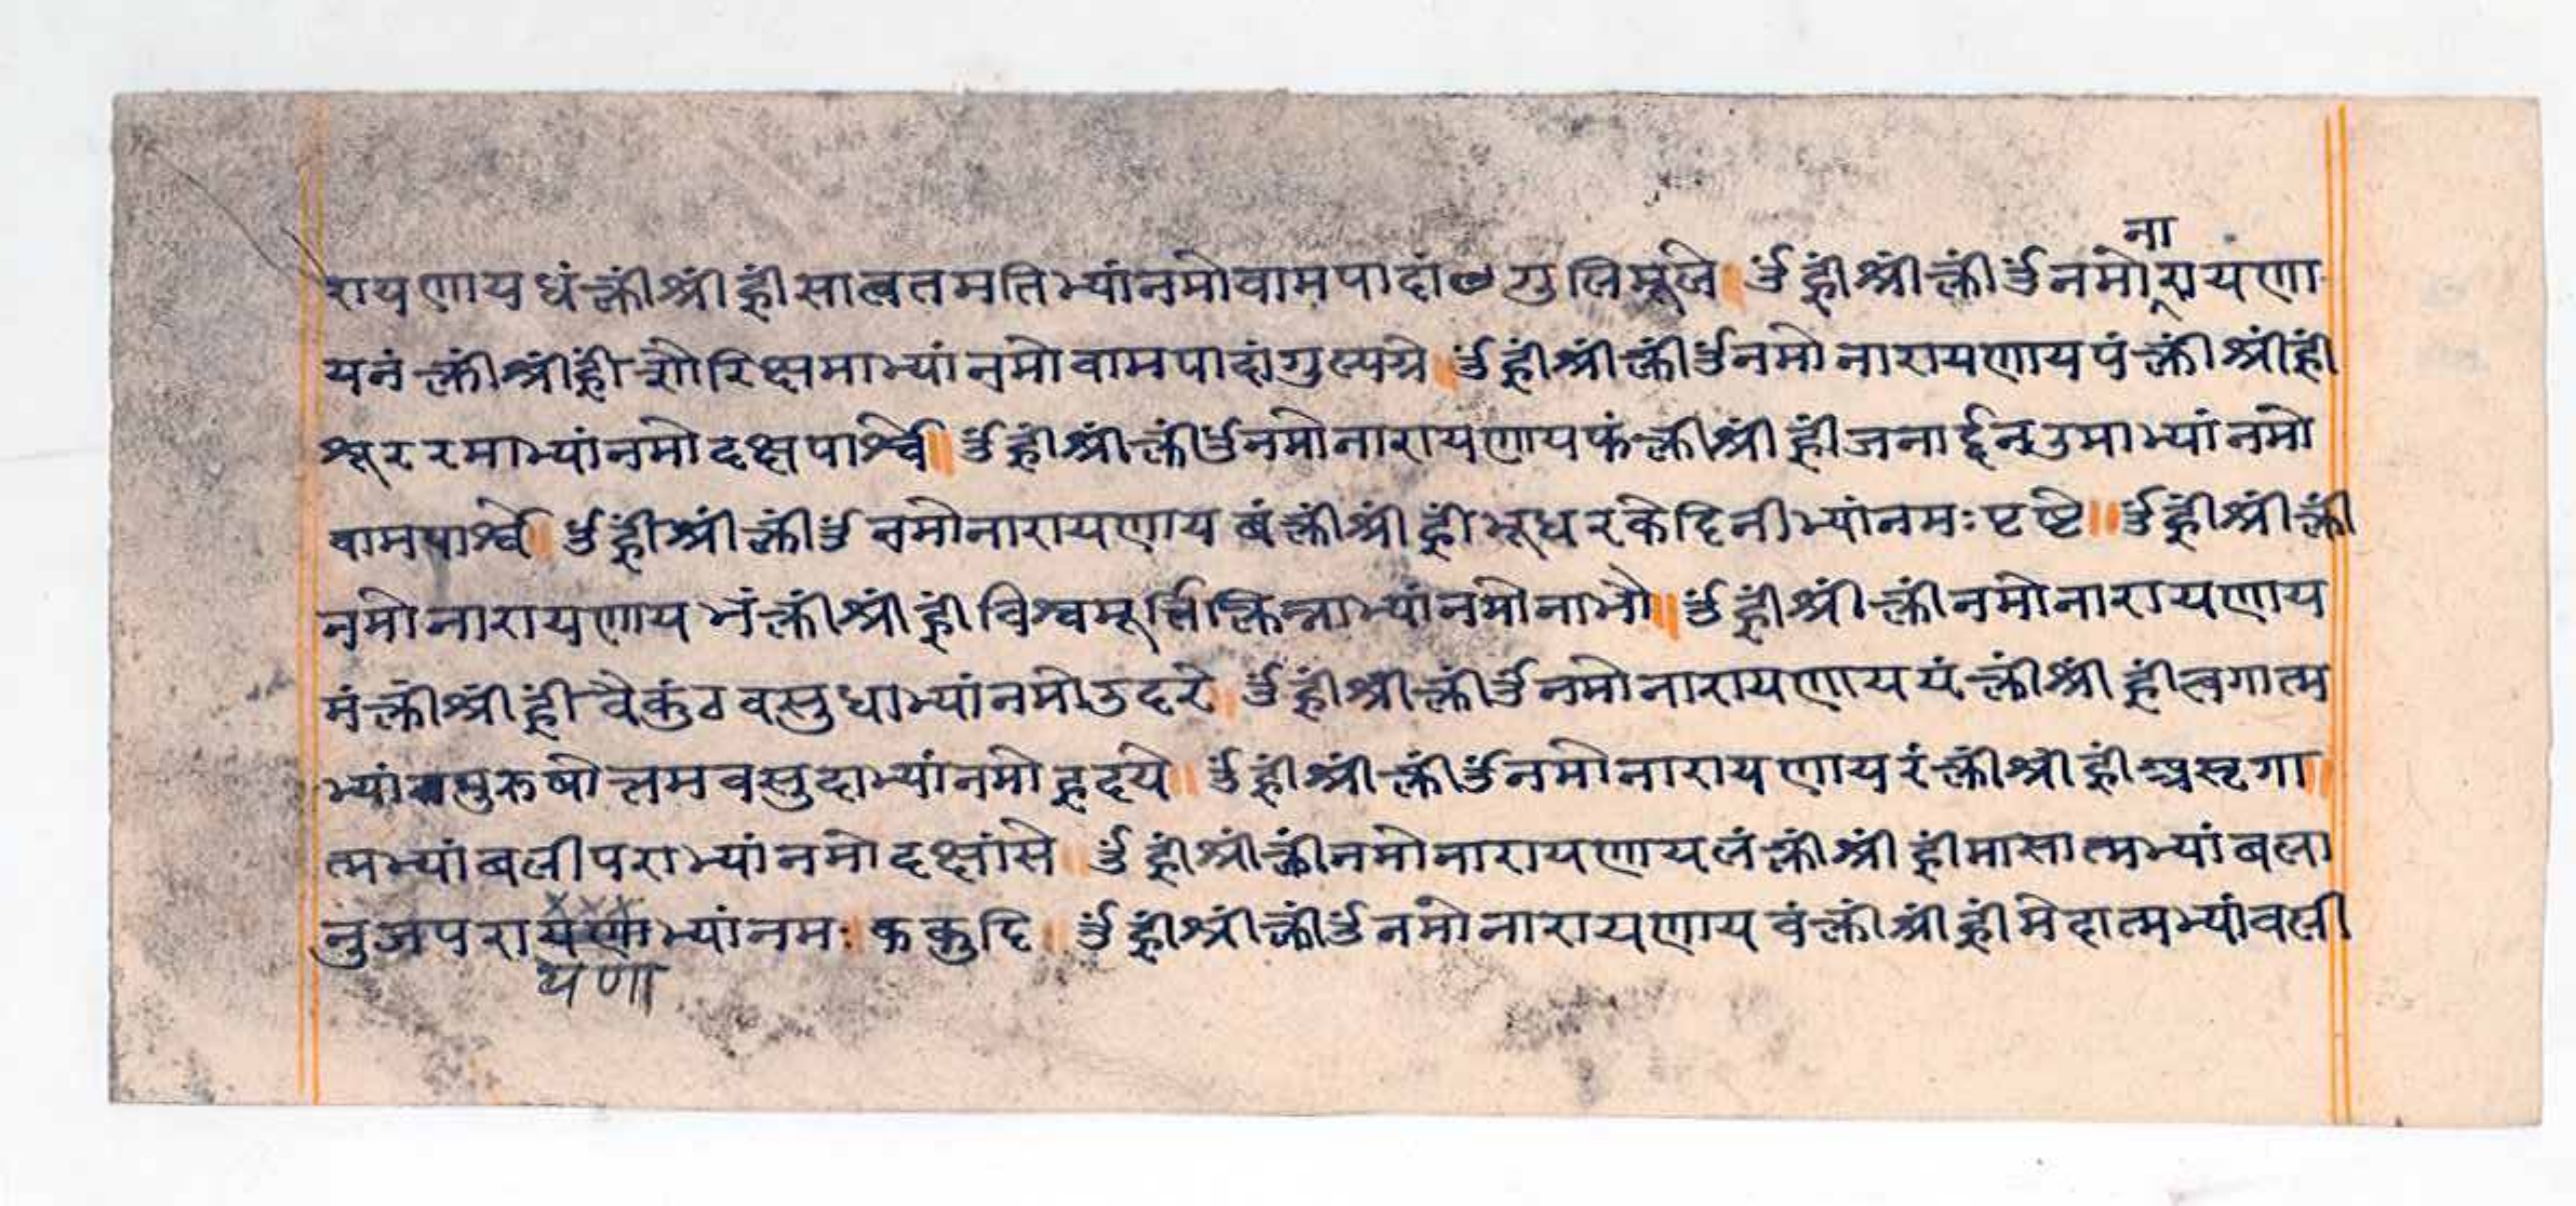 ना
रायणायधंक्लींश्रींह्रींसात्वतमतिभ्यांनमोवामपादांगुलिमूले ॐह्रींश्रींक्लींॐनमोरायणा
यनंक्लींश्रींह्रींशौरिक्षमाभ्यांनमोवामपादांगुल्यग्रे ॐह्रींश्रींक्लींॐनमोनारायणायपंक्लींश्रींह्रीं
श्शूररमाभ्यांनमोदक्षपार्श्वे॥ ॐह्रींश्रींक्लींॐनमोनारायणायफंक्लींश्रींह्रींजनार्द्दनउमाभ्यांनमो
वामपार्श्वे ॐह्रींश्रींक्लींॐनमोनारायणायबंक्लींश्रींह्रींभूधरकेदिनीभ्यांनमःपृष्टे॥ ॐह्रींश्रींक्लीं
नमोनारायणायभंक्लींश्रींह्रींविश्वमूर्त्तिक्लिन्नाभ्यांनमोनाभौ॥ ॐह्रींश्रींक्लींनमोनारायणाय
मंक्लींश्रींह्रींवैकुंठवसुधाभ्यांनमोउदरे ॐह्रींश्रींक्लींॐनमोनारायणाययंक्लींश्रींह्रींत्वगात्म
भ्यांपुरुषोत्तमवसुदाभ्यांनमोहृदये॥ ॐह्रींश्रींक्लींॐनमोनारायणायरंक्लींश्रींह्रींअसृगा
त्मभ्यांबलीपराभ्यांनमोदक्षांसे ॐह्रींश्रींक्लींनमोनारायणायलंक्लींश्रींह्रींमासात्मभ्यांबला
नुजपराभ्यांनमःककुदि॥ ॐह्रींश्रींक्लींॐनमोनारायणायवंक्लींश्रींह्रींमेदात्मभ्यांवली
यणा